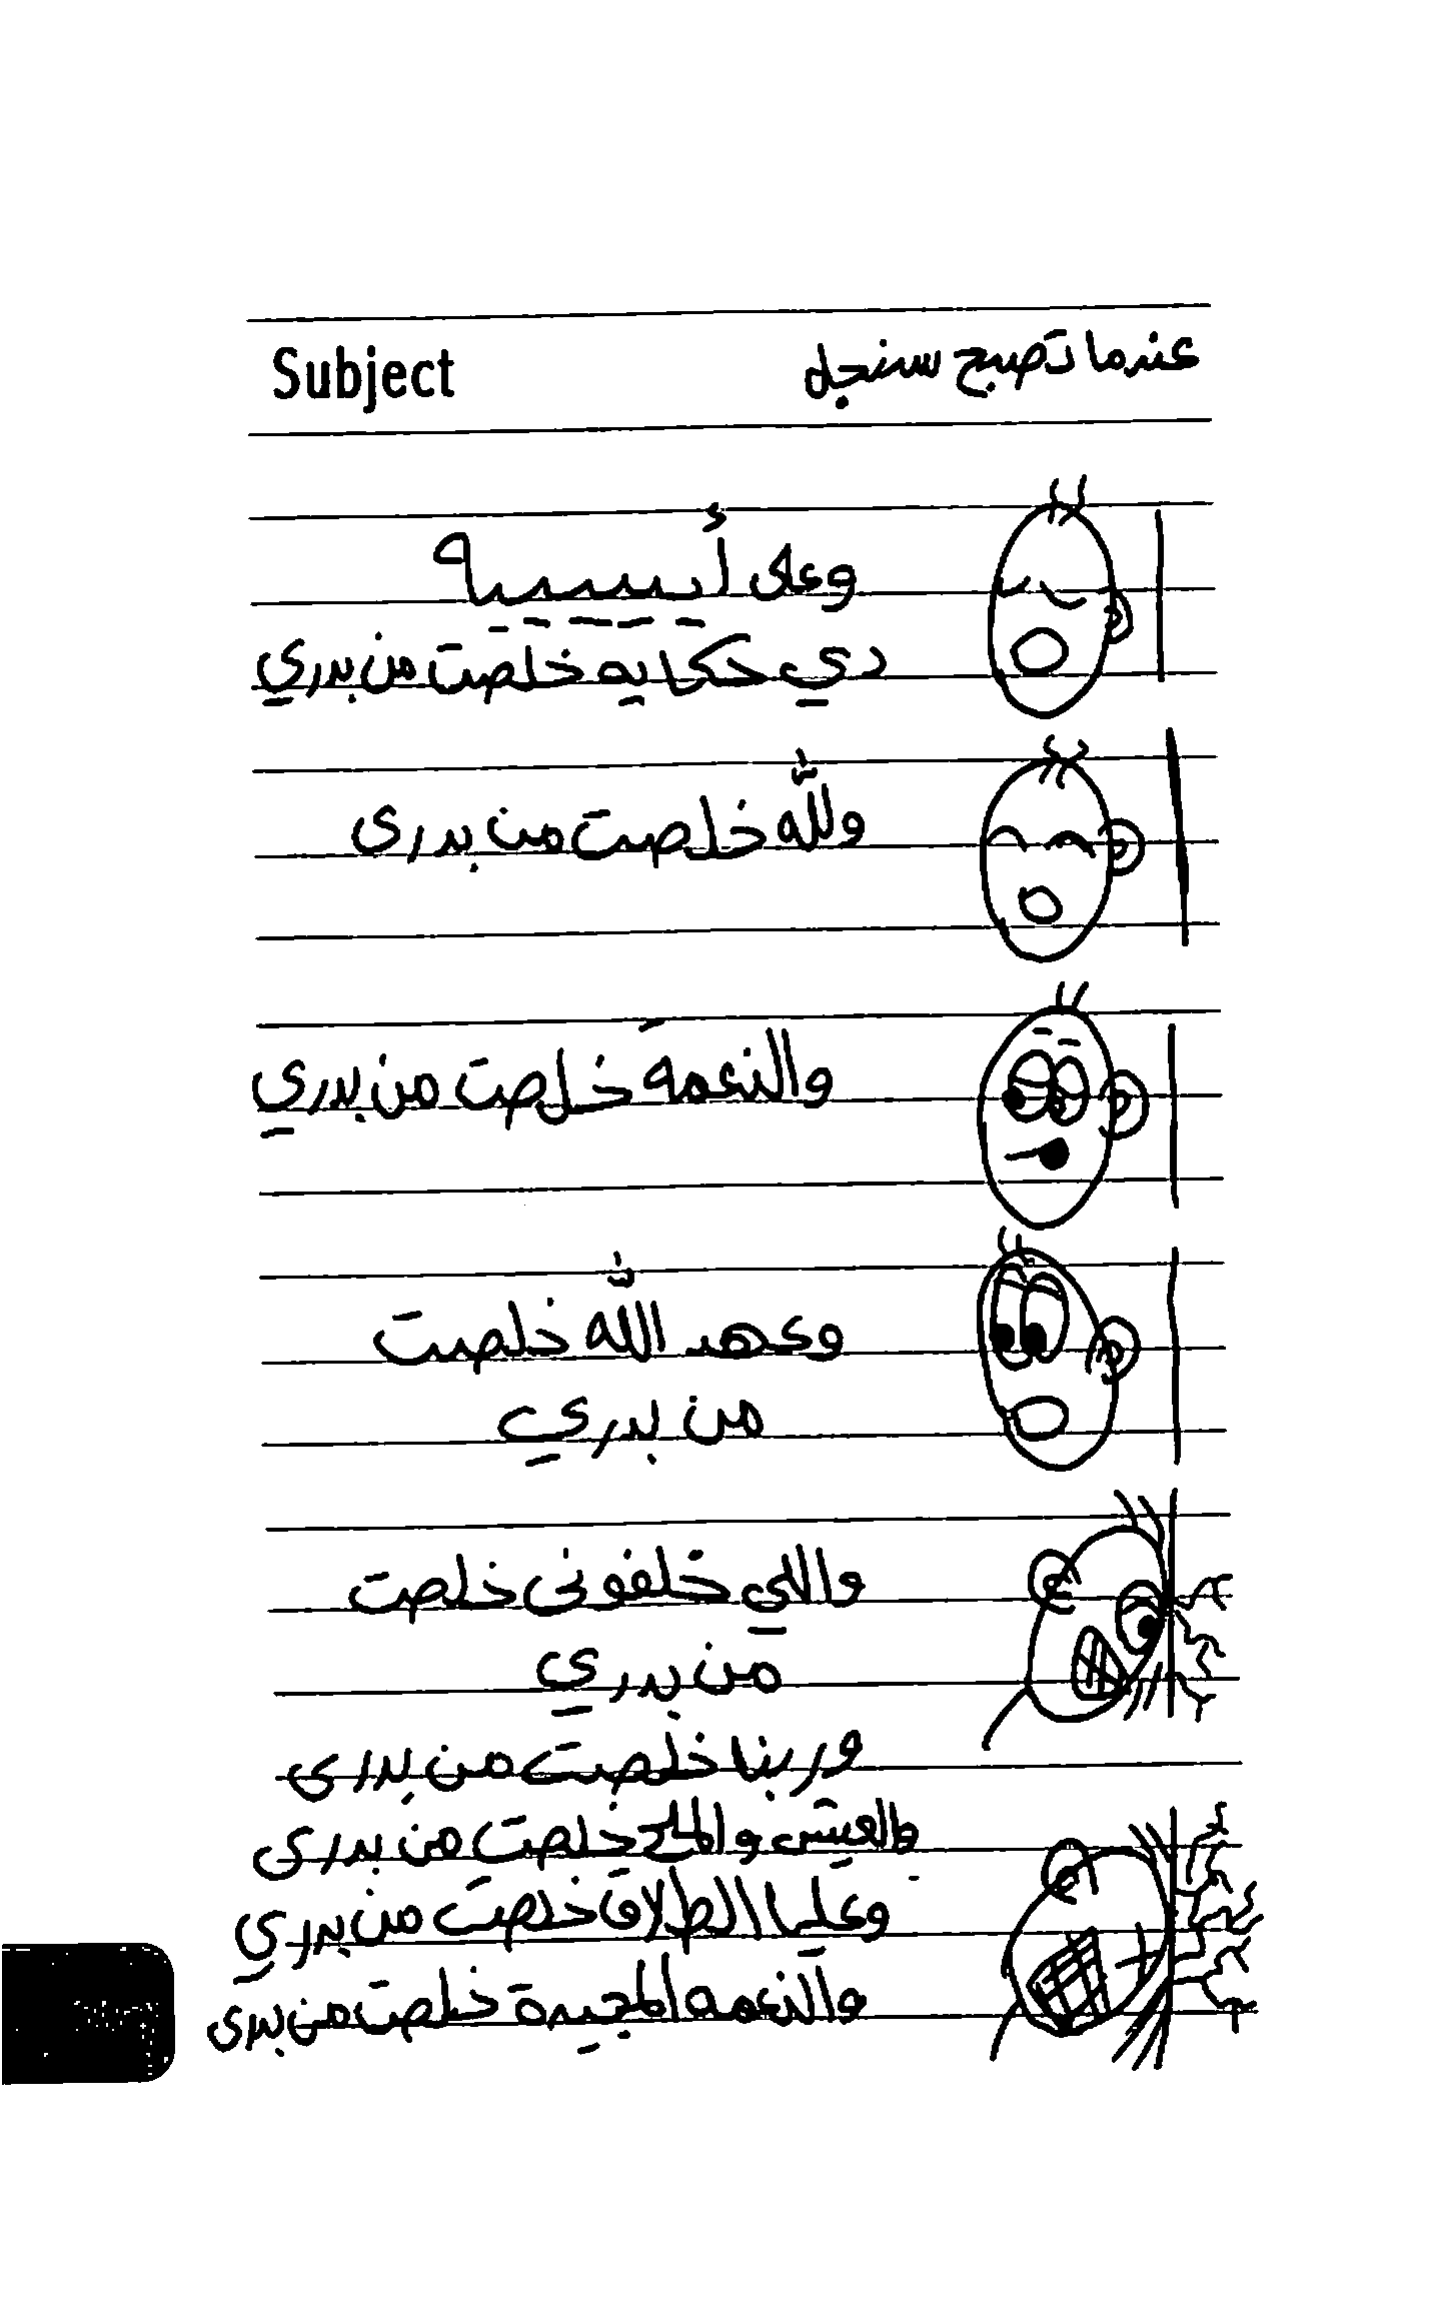 Subject
عندما تصبح سنجل
وعلى أيييييه
دي حكايه خلصت من بدري
وللّه خلصت من بدرى
والنعمة خلصت من بدري
وعهد اللّه خلصت
من بدري
واللي خلفونى خلصت
من بدري
وربنا خلصت من بدرى
والعيش والملح خلصت من بدرى
وعليا الطلاق خلصت من بدري
والنعمه المجيدة خلصت من بدرى